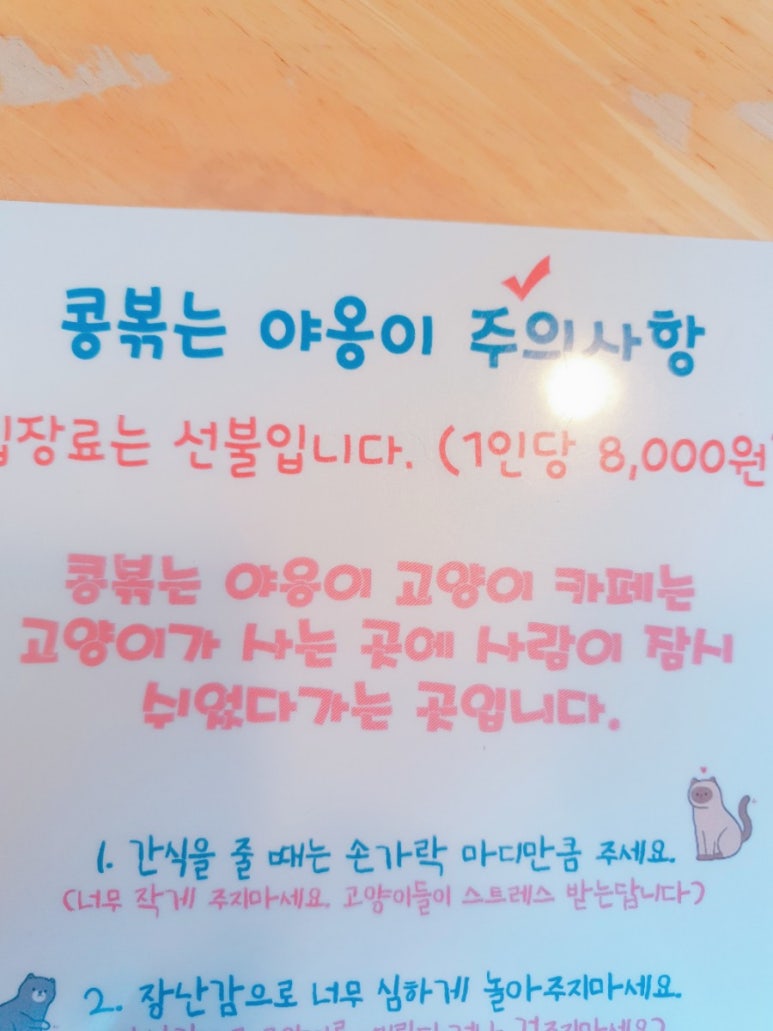 콩볶는 야옹이 주의사항
입장료는 선불입니다. (1인당 8,000원)
콩볶는 야옹이 고양이 카페는
고양이가 사는 곳에 사람이 잠시
쉬었다가는 곳입니다.
1. 간식을 줄 때는 손가락 마디만큼 주세요.
(너무 작게 주지마세요. 고양이들이 스트레스 받는답니다)
2. 장난감으로 너무 심하게 놀아주지마세요.